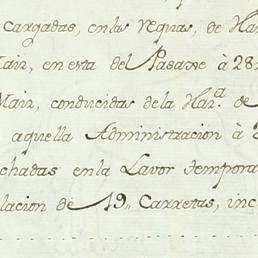 cargadas, en las yeguas, de Ha
air, en esta del Pasaxe à 28
Mair, conducidas de la Haz.ª de
aquella Administracion à
chadas en la Lavor tempora
lacion de 19,, Carretas, inc